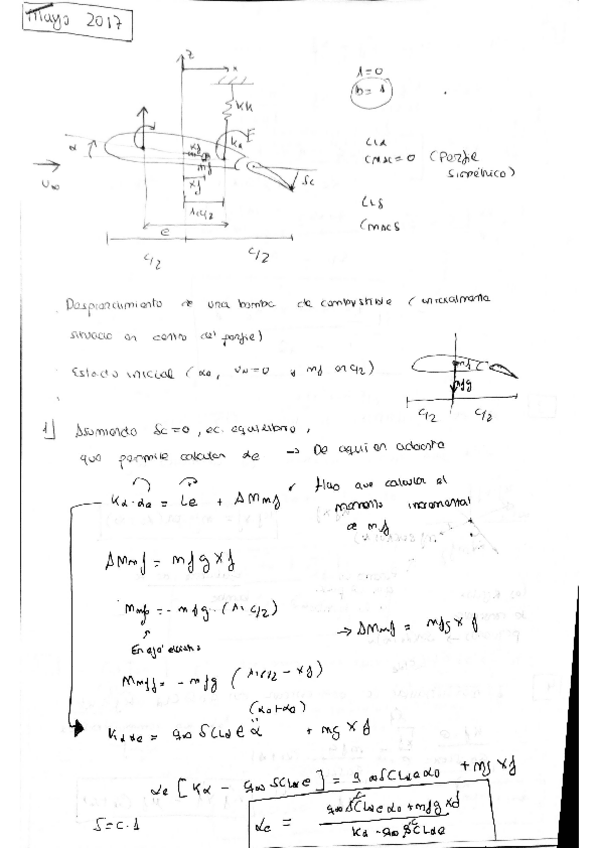 Mayo 2017
z
x
Λ=0
b = 1
Kh
α
Kα
U∞
xf
mf
δc
Λ c/2
e
c/2
c/2
CLα
Cmac=0 (Perfil
simétrico)
CLδ
Cmacδ
Desprendimiento de una bomba de combustible (inicialmente
situado en centro del perfil)
Estado inicial (α0, U∞=0 y mf en c/2)
mfg
c/2
c/2
1] Asumiendo δc=0, ec. equilibrio,
que permite calcular αe → De aquí en adelante
Kα·αe = Le + ΔMmf
tengo que calcular el
momento incremental
de mf
ΔMmf = mfg xf
Mmf0 = - mfg · (Λ · c/2)
En eje elástico
→ ΔMmf = mfg xf
Mmff = - mfg (Λ c/2 - xf)
(α0+αe)
Kα αe = q∞ S CLα e α + mg xf
αe [Kα - q∞ S CLα e] = q∞ S CLα e α0 + mg xf
S=c·1
αe = q∞ S CLα e α0 + mfg xf
Kα - q∞ S CLα e